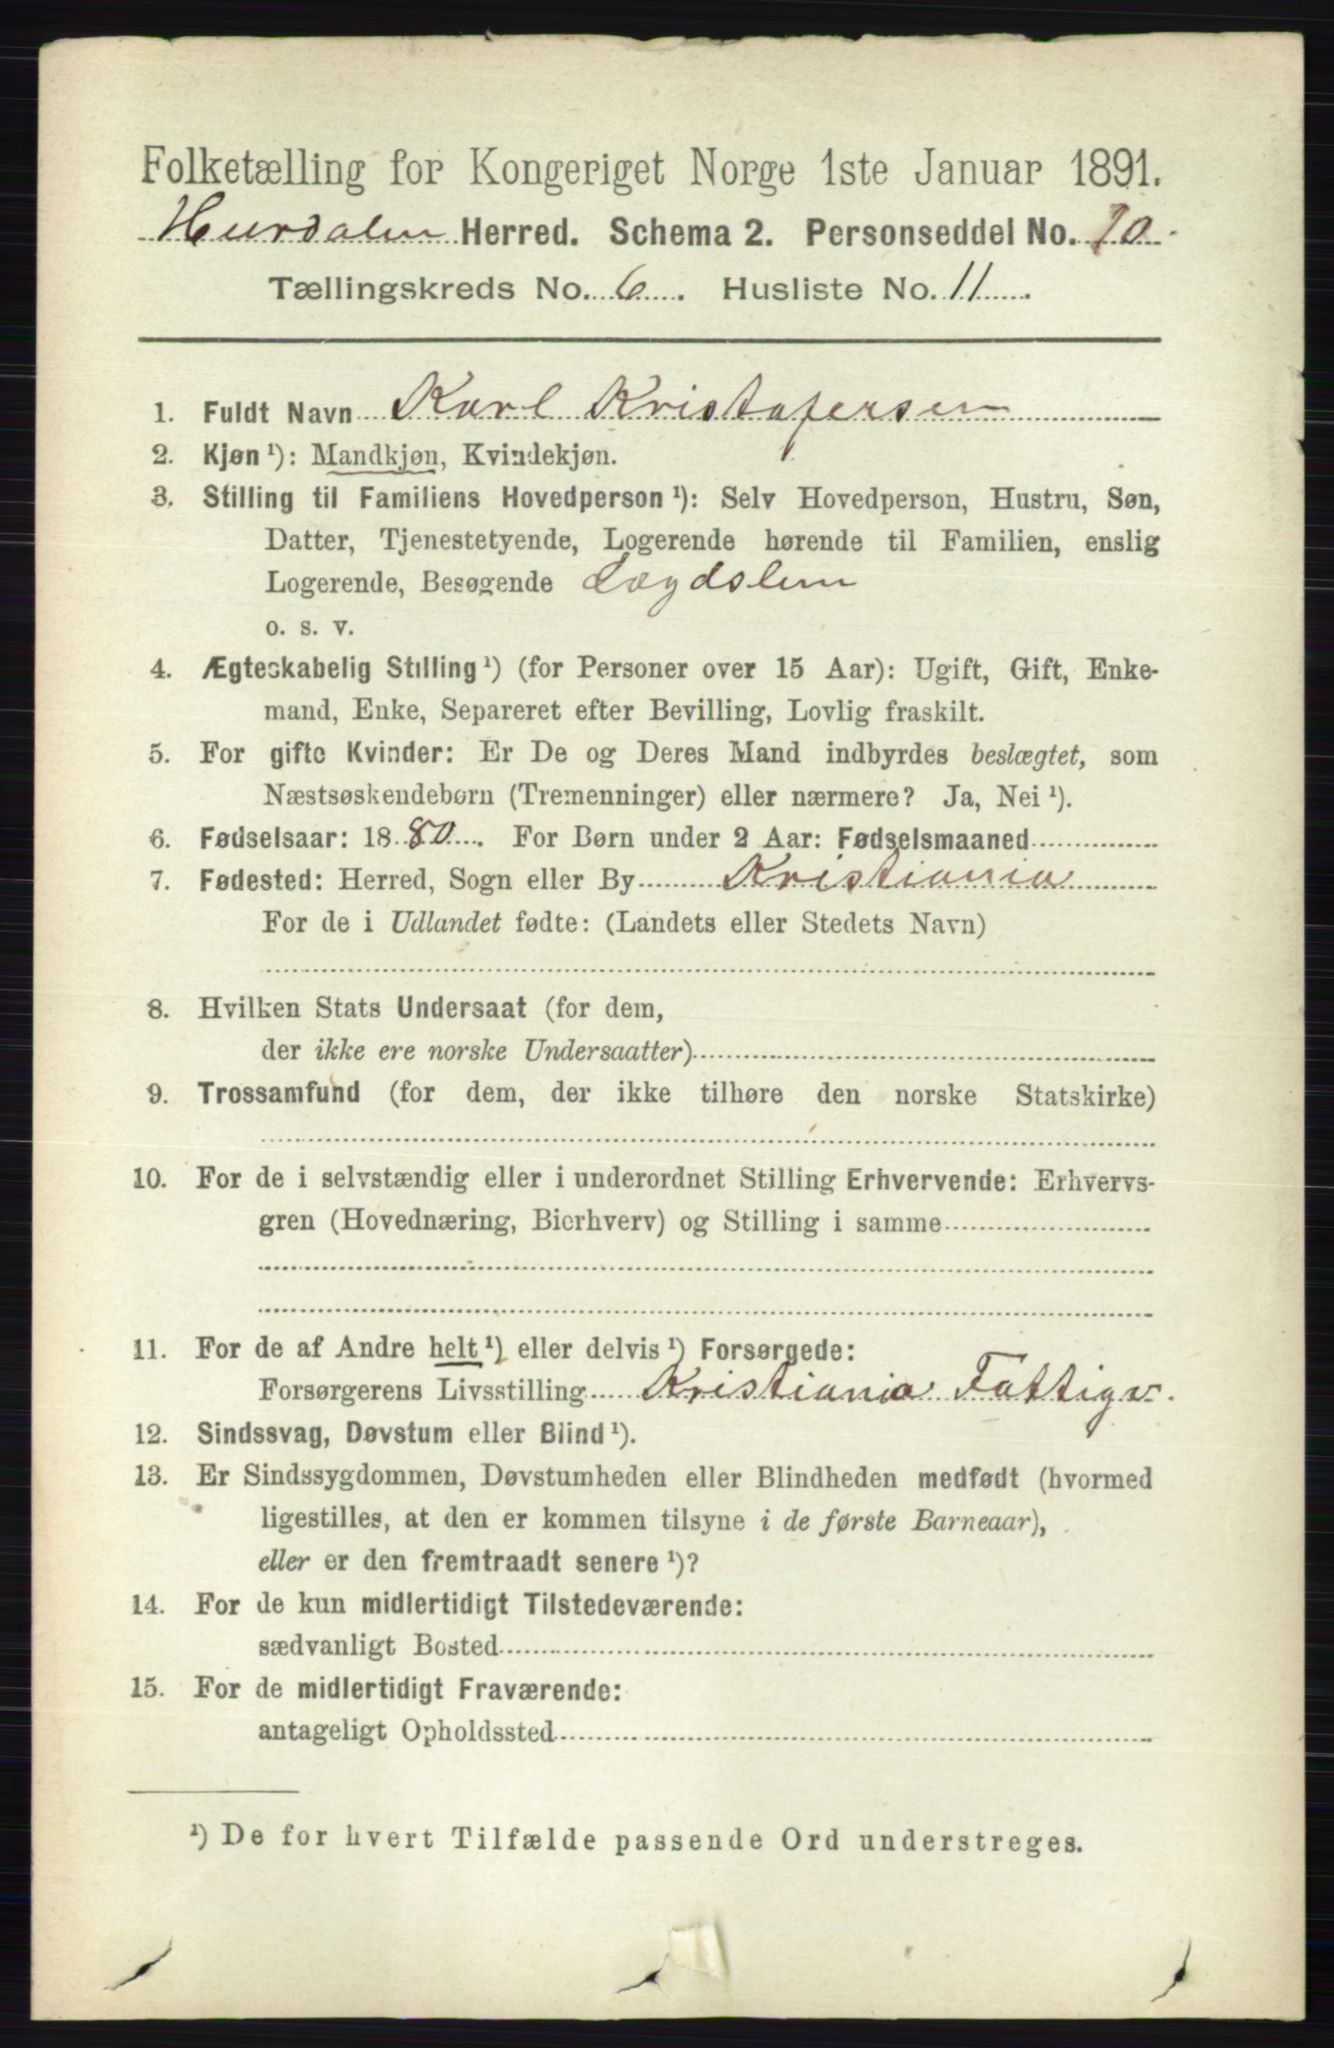 Folketælling for Kongeriget Norge 1ste Januar 1891.
Hurdalen Herred. Schema 2. Personseddel No. 10.
Tællingskreds No. 6. Husliste No. 11.
1. Fuldt Navn Karl Kristofersen
2. Kjøn ¹): Mandkjøn, Kvindekjøn.
3. Stilling til Familiens Hovedperson ¹): Selv Hovedperson, Hustru, Søn,
Datter, Tjenestetyende, Logerende hørende til Familien, enslig
Logerende, Besøgende Lægdslem
o. s. v.
4. Ægteskabelig Stilling ¹) (for Personer over 15 Aar): Ugift, Gift, Enke-
mand, Enke, Separeret efter Bevilling, Lovlig fraskilt.
5. For gifte Kvinder: Er De og Deres Mand indbyrdes beslægtet, som
Næstsøskendebørn (Tremenninger) eller nærmere? Ja, Nei ¹).
6. Fødselsaar: 1880. For Børn under 2 Aar: Fødselsmaaned
7. Fødested: Herred, Sogn eller By Kristiania
For de i Udlandet fødte: (Landets eller Stedets Navn)
8. Hvilken Stats Undersaat (for dem,
der ikke ere norske Undersaatter)
9. Trossamfund (for dem, der ikke tilhøre den norske Statskirke)
10. For de i selvstændig eller i underordnet Stilling Erhvervende: Erhvervs-
gren (Hovednæring, Bierhverv) og Stilling i samme
11. For de af Andre helt ¹) eller delvis ¹) Forsørgede:
Forsørgerens Livsstilling Kristiania Fattigv.
12. Sindssvag, Døvstum eller Blind ¹).
13. Er Sindssygdommen, Døvstumheden eller Blindheden medfødt (hvormed
ligestilles, at den er kommen tilsyne i de første Barneaar),
eller er den fremtraadt senere ¹)?
14. For de kun midlertidigt Tilstedeværende:
sædvanligt Bosted
15. For de midlertidigt Fraværende:
antageligt Opholdssted
¹) De for hvert Tilfælde passende Ord understreges.